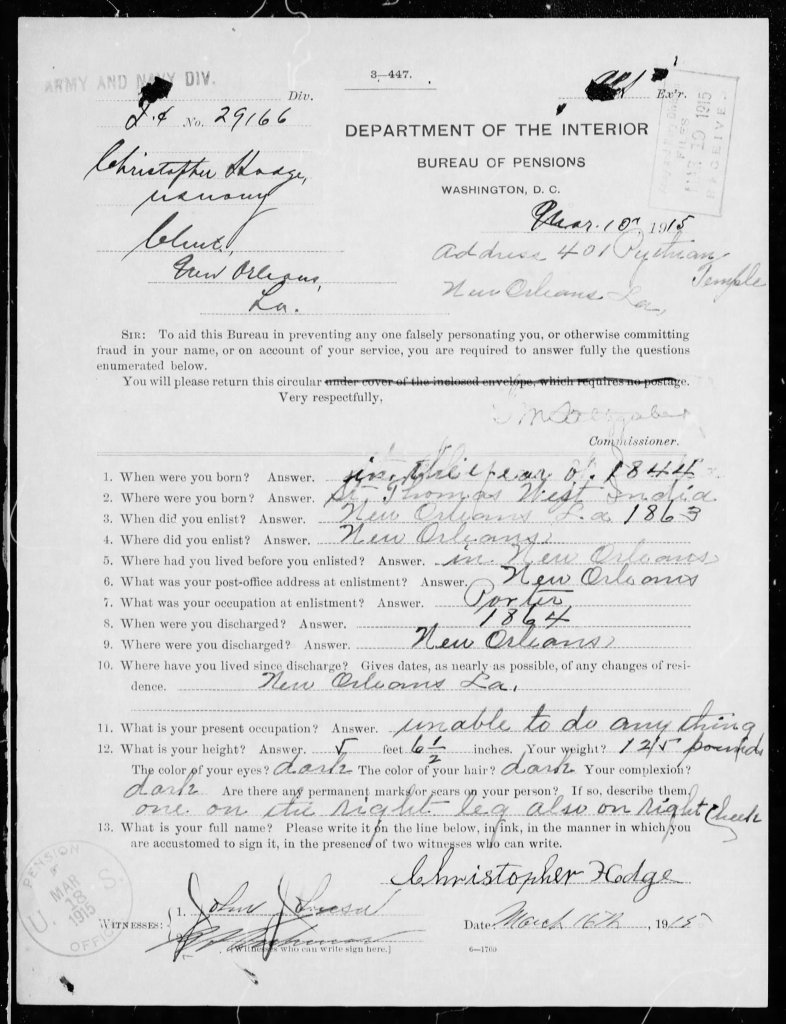 ARMY AND NAVY DIV.
3—447.
Div. Ex'r.
No. 29166
FILES
MAR 19 1915
RECEIVED
DEPARTMENT OF THE INTERIOR
BUREAU OF PENSIONS
WASHINGTON, D. C.
Christopher Hodge,
Mar. 10, 1915
Address 401 Pythian
Temple
New Orleans La,
New Orleans,
La.
SIR: To aid this Bureau in preventing any one falsely personating you, or otherwise committing
fraud in your name, or on account of your service, you are required to answer fully the questions
enumerated below.
You will please return this circular under cover of the inclosed envelope, which requires no postage.
Very respectfully,
Commissioner.
1. When were you born? Answer. in the year of 1844
2. Where were you born? Answer. St. Thomas West India
3. When did you enlist? Answer. New Orleans La 1863
4. Where did you enlist? Answer. New Orleans
5. Where had you lived before you enlisted? Answer. in New Orleans
6. What was your post-office address at enlistment? Answer. New Orleans
7. What was your occupation at enlistment? Answer. Porter
8. When were you discharged? Answer. 1864
9. Where were you discharged? Answer. New Orleans
10. Where have you lived since discharge? Gives dates, as nearly as possible, of any changes of resi-
dence. New Orleans La.
11. What is your present occupation? Answer. unable to do any thing
12. What is your height? Answer. 5 feet 6 1/2 inches. Your weight? 125 pounds
The color of your eyes? dark The color of your hair? dark Your complexion?
dark Are there any permanent marks or scars on your person? If so, describe them,
one on the right leg also on right cheek
13. What is your full name? Please write it on the line below, in ink, in the manner in which you
are accustomed to sign it, in the presence of two witnesses who can write.
Christopher Hodge
PENSION
MAR
18
1915
U. S.
OFFICE
WITNESSES: 1. John
2.
[Witnesses who can write sign here.]
Date March 16th, 1915
6—1760